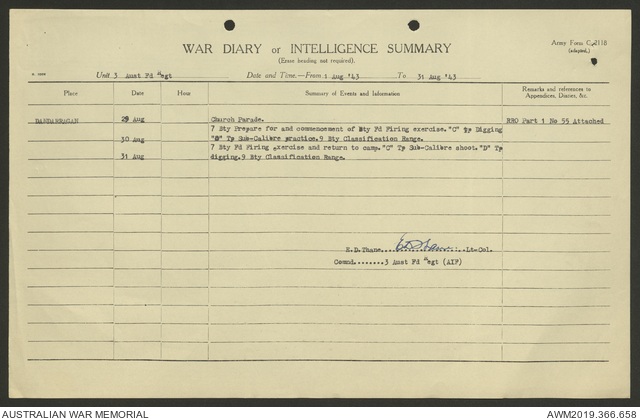 WAR DIARY or INTELLIGENCE SUMMARY
(Erase heading not required).
Army Form C.2118
(adapted.)
Unit 3 Aust Fd Regt
Date and Time.—From 1 Aug '43 To 31 Aug '43
Place Date Hour Summary of Events and Information Remarks and references to Appendices, Diaries, &c.
DANDARRAGAN 29 Aug Church Parade. RRO Part 1 No 55 Attached
7 Bty Prepare for and commencement of Bty Fd Firing exercise. "C" Tp Digging
30 Aug "D" Tp Sub-Calibre practice. 9 Bty Classification Range.
7 Bty Fd Firing exercise and return to camp. "C" Tp Sub-Calibre shoot. "D" Tp
31 Aug digging. 9 Bty Classification Range.
E.D.Thane.............Lt-Col.
Comnd........3 Aust Fd Regt (AIF)
AUSTRALIAN WAR MEMORIAL AWM2019.366.658